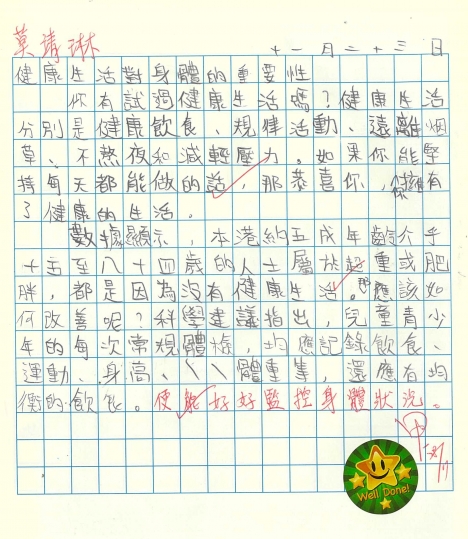 莫靖琳
十一月二十三日
健康生活對身體的重要性
你有試過健康生活嗎？健康生活
分別是健康飲食、規律活動、遠離烟
草、不熬夜和減輕壓力。如果你能堅
持每天都能做的話，那恭喜你，你擁有
了健康的生活。
數據顯示，本港約五成年齡介乎
十五至八十四歲的人士屬於超重或肥
胖，都是因為沒有健康生活。那應該如
何改善呢？科學建議指出，兒童青少
年的每次常規體檢，均應記錄飲食、
運動、身高、體重等，還應有均
衡的飲食。便能好好監控身體狀況。
Well Done!